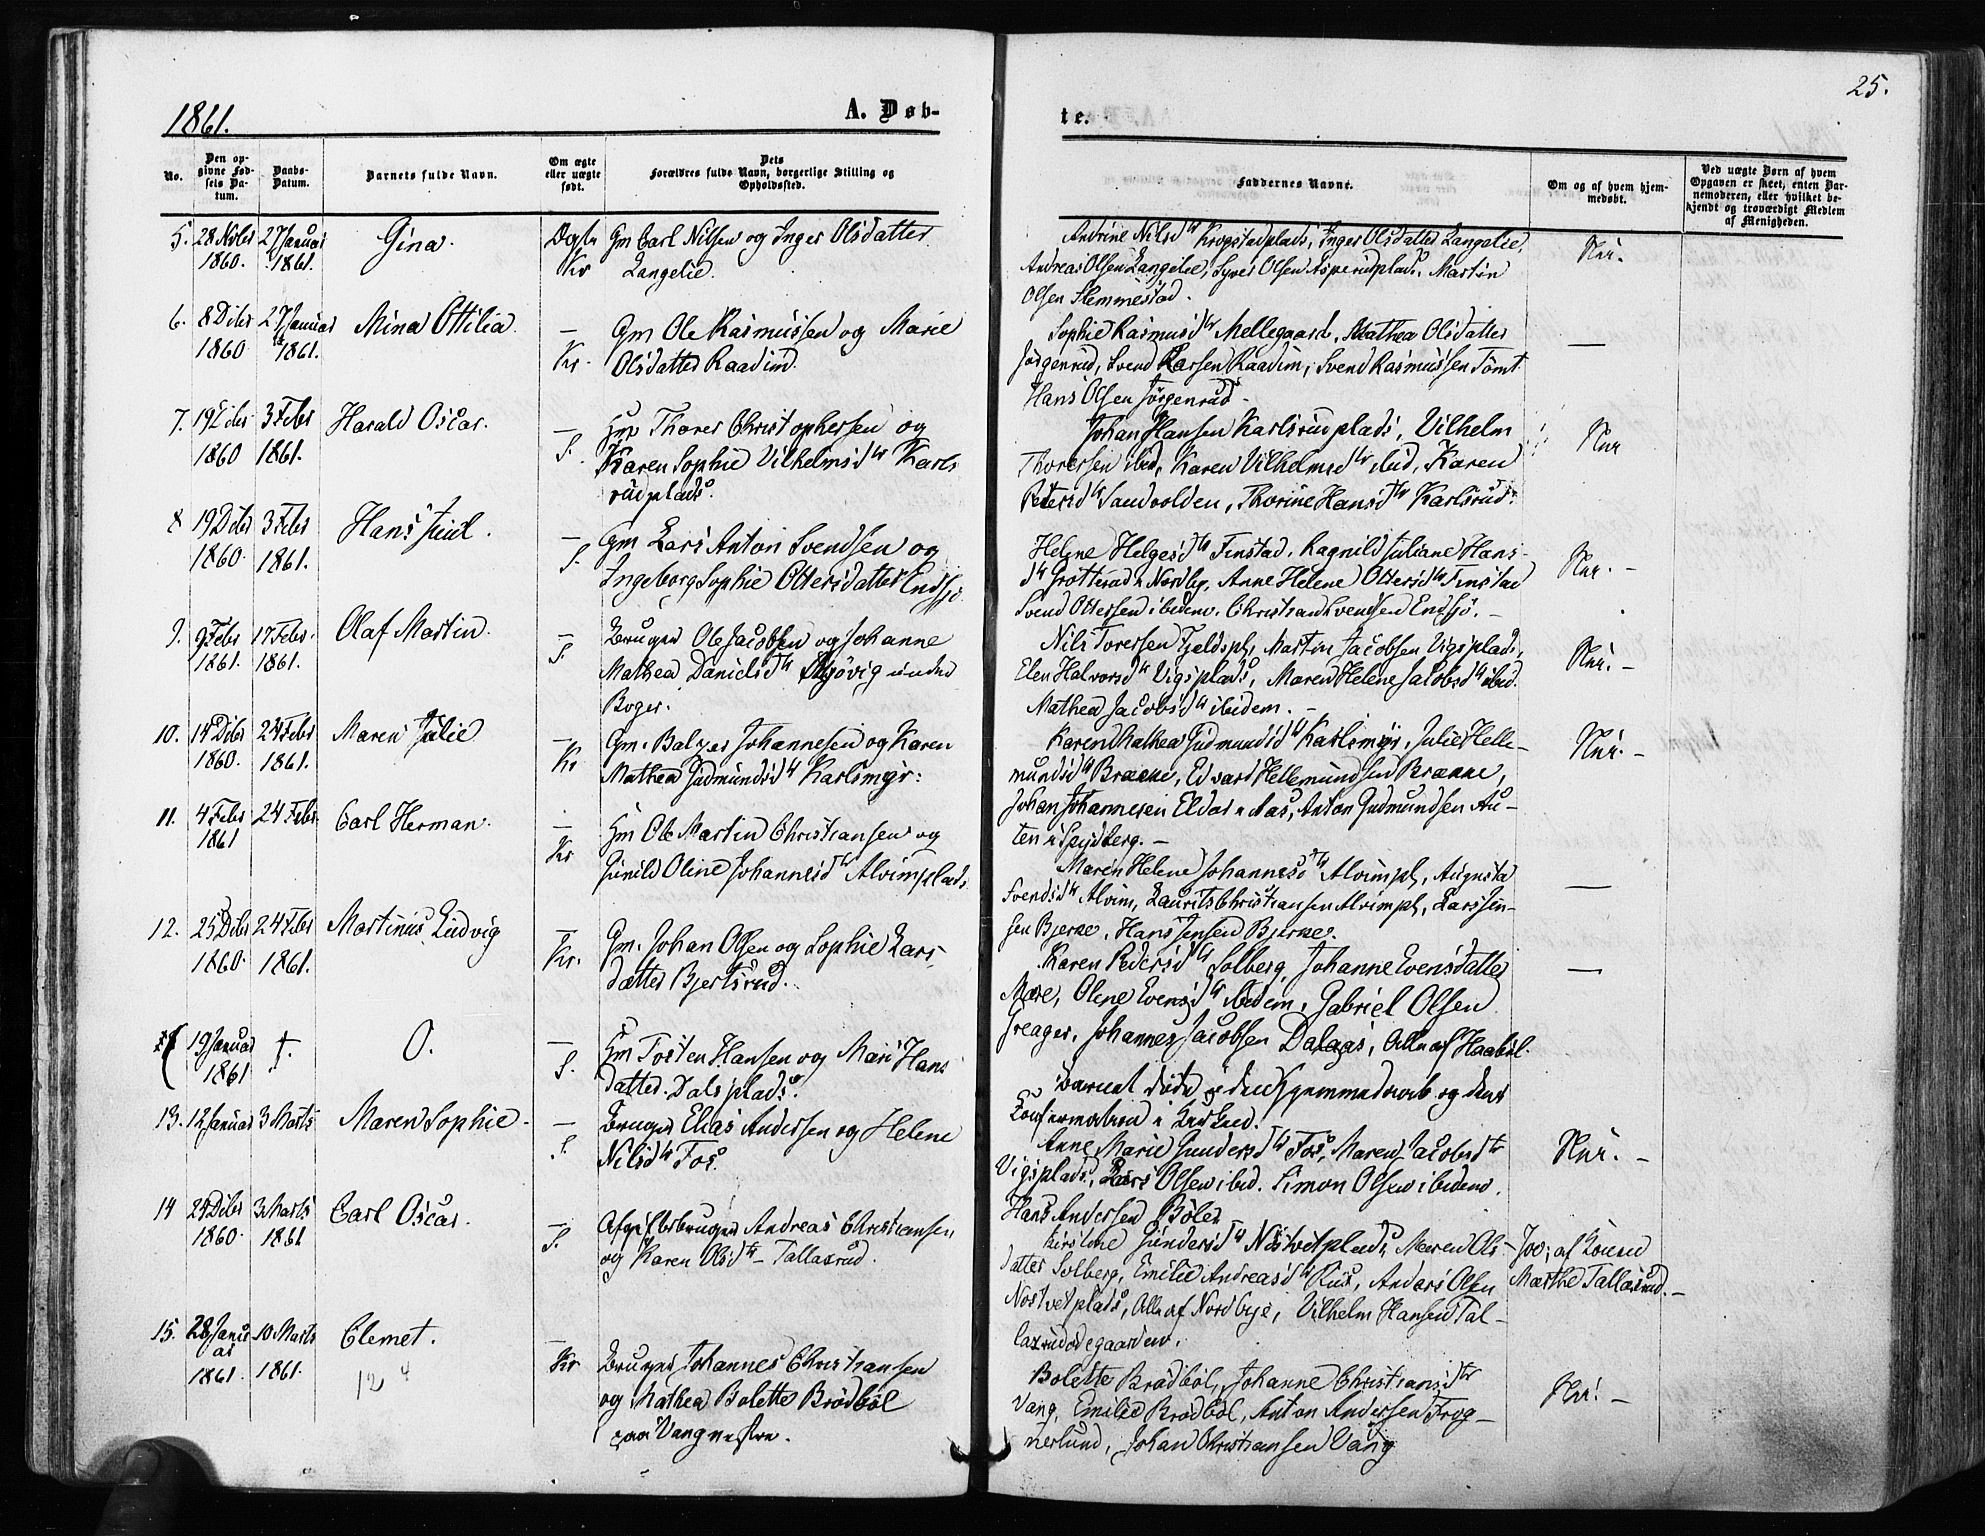 25.
1861.
A. Døb-
te.
No.
Den op-
givne Fød-
sels Da-
tum.
Daabs-
Datum.
Barnets fulde Navn.
Om ægte
eller uægte
født.
Dets
Forældres fulde Navn, borgerlige Stilling og
Opholdssted.
Faddernes Navne.
Om og af hvem hjem-
medøbt.
Ved uægte Børn af hvem
Opgaven er skeet, enten Bar-
nemoderen, eller hvilket be-
kjendt og troværdigt Medlem
af Menigheden.
5. 28 Nvbr 27 Januar Gina. Ægte Gm Carl Nilsen og Inger Olsdatter
1860. 1861. Kr Langelie.
Andrine Nilsdtr Krogstadplads, Inger Olsdatter Langelie,
Andreas Olsen Langelie, Syver Olsen Asperudplads, Martin
Olsen Hemmestad.
Nei.
6. 8 Dcbr 27 Januar Mina Ottilia. — Gm Ole Rasmussen og Marie
1860 1861. Kr. Olsdatter Raadim.
Sophie Rasmusdtr Mellegaard, Mathea Olsdatter
Jørgenrud, Svend Larsen Raadim, Svend Rasmussen Tomt
Hans Olsen Jørgenrud.
—
7. 19 Dcbr 3 Febr Harald Oscar. — Hm Thorer Christophersen og
1860 1861. S. Karen Sophie Vilhelmsdtr Karls
rudplads.
Johan Hansen Karlsrudplads, Vilhelm
Thoresen ibid, Karen Vilhelmsdtr ibid, Karen
Pedersdtr Sandvolden, Thorine Hansdtr Karlsrud.
Nei
8 19 Dcbr 3 Febr Hans Juul. — Gm Lars Anton Svendsen og
1860. 1861. S. Ingeborg Sophie Ottersdatter Endsjø
Helene Helgesdtr Finstad, Ragnild Juliane Hans-
dtr Grøtterud i Nordby, Anne Helene Ottersdtr Finstad
Svend Ottersen ibidem, Christian Svendsen Endsjø. —
Nei. —
9. 9 Febr 17 Febr. Olaf Martin. — Bruger Ole Jacobsen og Johanne
1861. 1861. S. Mathea Danielsdtr under
Boger.
Nils Toresen Fjeldspl, Martin Jacobsen Vigsplads,
Elen Halvorsdtr Vigsplads, Maren Helene Jacobsdtr ibid.
Mathea Jacobsdtr ibidem. —
Nei. —
10. 14 Dcbr 24 Febr Maren Julie — Gm. Johannesen og Karen
1860. 1861. Kr Mathea Gudmundsdtr Karlsmyr.
Karen Mathea Gudmundsdtr Karlsmyr, Julie Helle-
mundsdtr Brænne, Edvard Hellemundsen Brænne,
Johan Johannesen Eldor i Aas, Anton Gudmundsen Au-
ten i Spydberg. —
Nei. —
11. 4 Febr 24 Febr. Carl Herman. — Hm Ole Martin Christiansen og
1861 Kr Gunild Oline Johannesdtr Alvimplads
Maren Helene Johannesdtr Alvimpl, Augusta
Svendsdtr Alvim, Laurits Christiansen Alvimpl, Lars Jen-
sen Bjerke, Hans Jensen Bjerke.
—
12. 25 Dcbr 24 Febr Martinus Ludvig — Gm. Johan Olsen og Sophie Lars
1860. 1861. Kr. datter Bjertsrud.
Karen Pedersdtr Solberg, Johanne Evensdatter
Mære, Olene Evensdtr ibidem, Gabriel Olsen
Greager, Johannes Jacobsen Dalaas, Alle af Haabøl.
—
19 Januar †. O. — Hm Tosten Hansen og Mari Hans
1861 S. datter Dalsplads.
Barnet døde ved Hjemmedaab og dens
Confirmation i Kirken.
13. 12 Januar 3 Marts Maren Sophie. — Bruger Elias Andersen og Helene
S. Nilsdtr Fos.
Anne Marie Gundersdtr Fos, Maren Jacobsdtr
Vigsplads, Lars Olsen ibid. Simon Olsen ibidem,
Hans Andersen Bøler
Nei. —
14 24 Dcbr 3 Marts Carl Oscar. — Afgiftsbruger Andreas Christiansen
1860. 1861 S. og Karen Olsdtr — Tallaxrud.
Kirstine Gundersdtr Nøstvetplads, Maren Ols-
datter Solberg, Emilie Andreasdtr Riis, Anders Olsen
Nøstvetplads, Alle af Nordbye, Vilhelm Hansen Tal-
laxrudødegaarden.
Jo; af
Marthe Tallaxrud. —
15. 28 Janu 10 Marts Clemet. — Bruger Johannes Christiansen
ar
1861. 1861. Kr og Mathea Bolette Brødbøl
12
paa Vang nestre.
Bolette Brødbøl, Johanne Christiansdtr
Vang, Emilie Brødbøl, Anton Andersen Frog-
nerlund, Johan Christiansen Vang
Nei. —